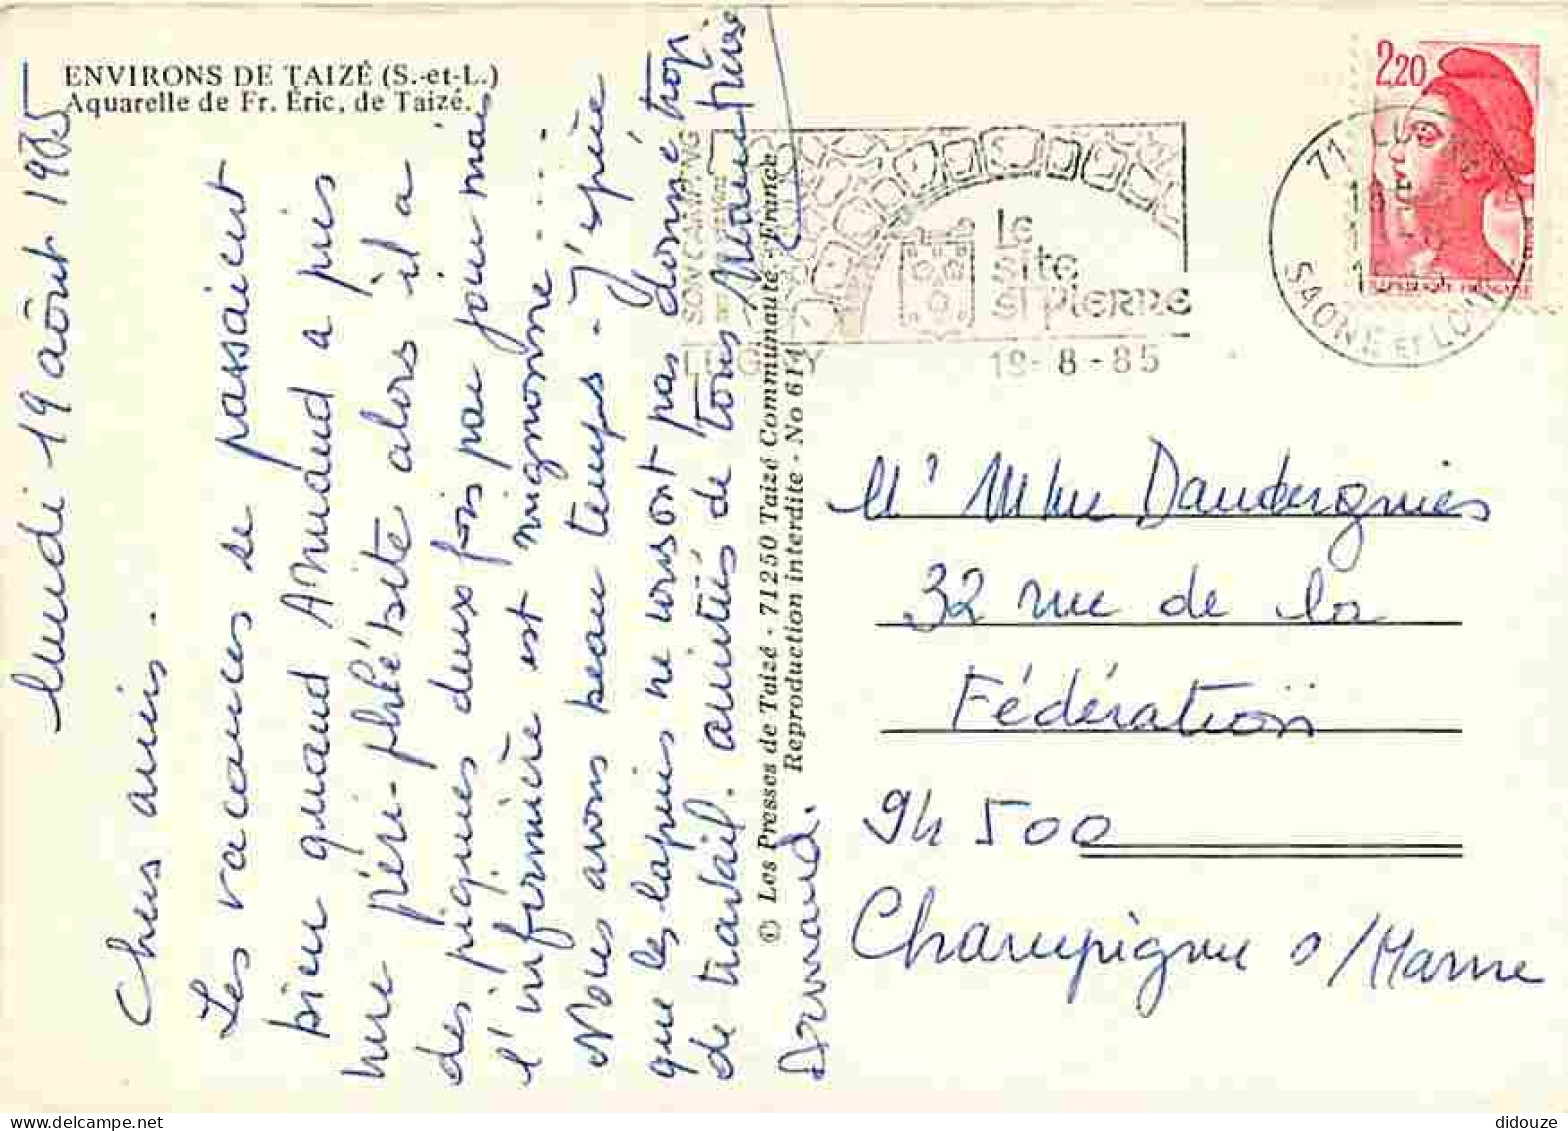 ENVIRONS DE TAIZÉ (S.-et-L.)
Aquarelle de Fr. Éric, de Taizé.
lundi 19 août 1985
Chers amis.
Les vacances se passaient
bien quand Armand a pris
une péri-phlébite alors il a
des piqures deux fois par jour mais
l'infirmière est mignonne....
Nous avons beau temps - J'espère
que les lapins ne vous ont pas donné trop
de travail. amitiés de tous Mauricette
Armand.
© Les Presses de Taizé - 71250 Taizé Communauté - France
Reproduction interdite - No 611
SON CAMPING
LUGNY
le
site
St PIERRE
19-8-85
2,20
71 LUGNY
SAONE ET LOIRE
Mr Mme Daubergnies
32 rue de la
Fédération
94 500
Champigny s/Marne
didouze